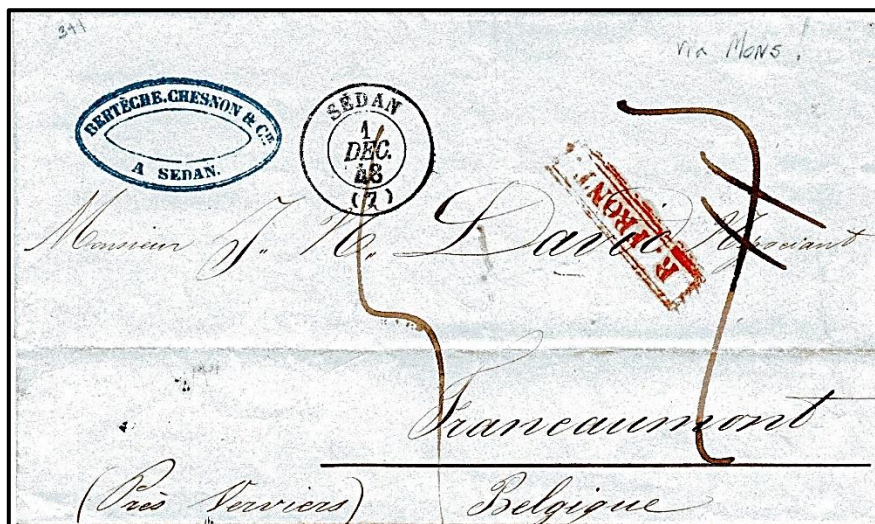 341
via Mons!
BERTÈCHE. CHESNON & Cie
A SEDAN.
SEDAN
1
DEC.
48
(7)
R. FRONT.
Monsieur J. N. David Négociant
Francaumont
(Près Verviers) Belgique